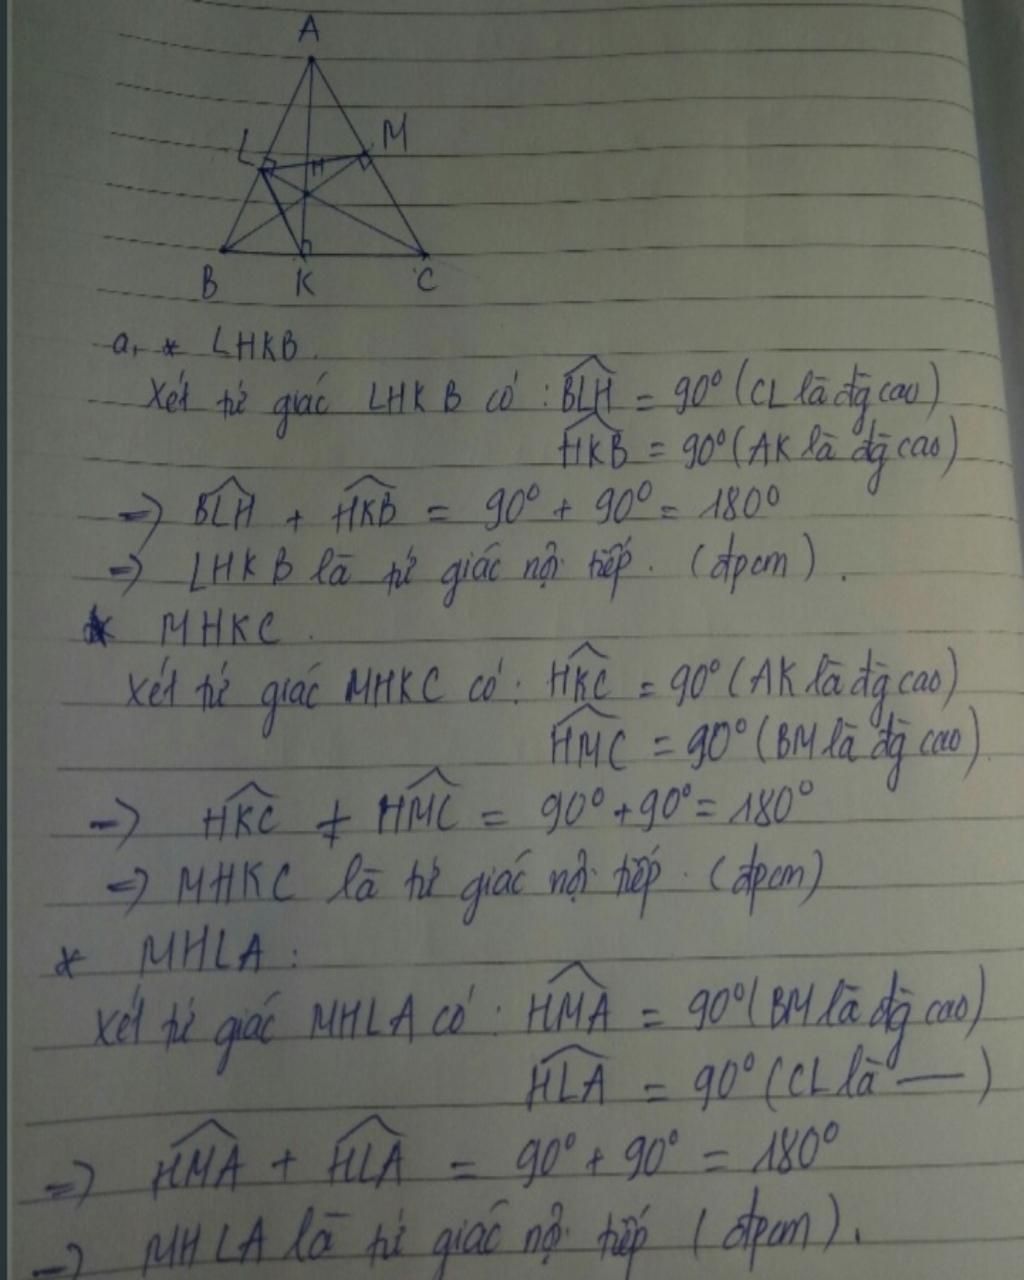 A
L
M
H
B
K
C
a, * LHKB.
Xét tứ giác LHKB có: BLH = 90° (CL là đg cao)
HKB = 90° (AK là đg cao)
=> BLH + HKB = 90° + 90° = 180°
=> LHKB là tứ giác nội tiếp. (đpcm).
* MHKC.
Xét tứ giác MHKC có: HKC = 90° (AK là đg cao)
HMC = 90° (BM là đg cao)
=> HKC + HMC = 90° + 90° = 180°
=> MHKC là tứ giác nội tiếp. (đpcm)
* MHLA:
Xét tứ giác MHLA có: HMA = 90° (BM là đg cao)
HLA = 90° (CL là —)
=> HMA + HLA = 90° + 90° = 180°
=> MHLA là tứ giác nội tiếp (đpcm).